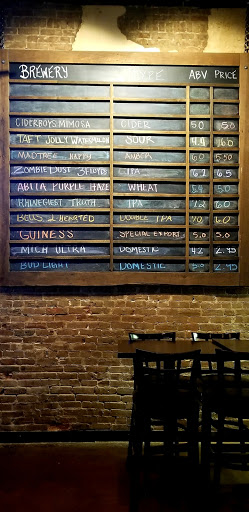 BREWERY TYPE ABV PRICE
CIDERBOYS MIMOSA CIDER 5.0 5.0
TAFT JOLLY WATERMELON SOUR 4.4
MADTREE HAPPY AMBER 6.0 5.50
ZOMBIE DUST 3 FLOYDS 6.2 6.5
ABITA PURPLE HAZE WHEAT 5.0
RHINEGEIST TRUTH IPA 7.2 6.0
BELLS 2 HEARTED DOUBLE IPA 6.0
GUINESS SPECIAL EXPORT 5.0 5.0
MICH ULTRA DOMESTIC 4.2 2.95
BUD LIGHT DOMESTIC 5.0 2.95